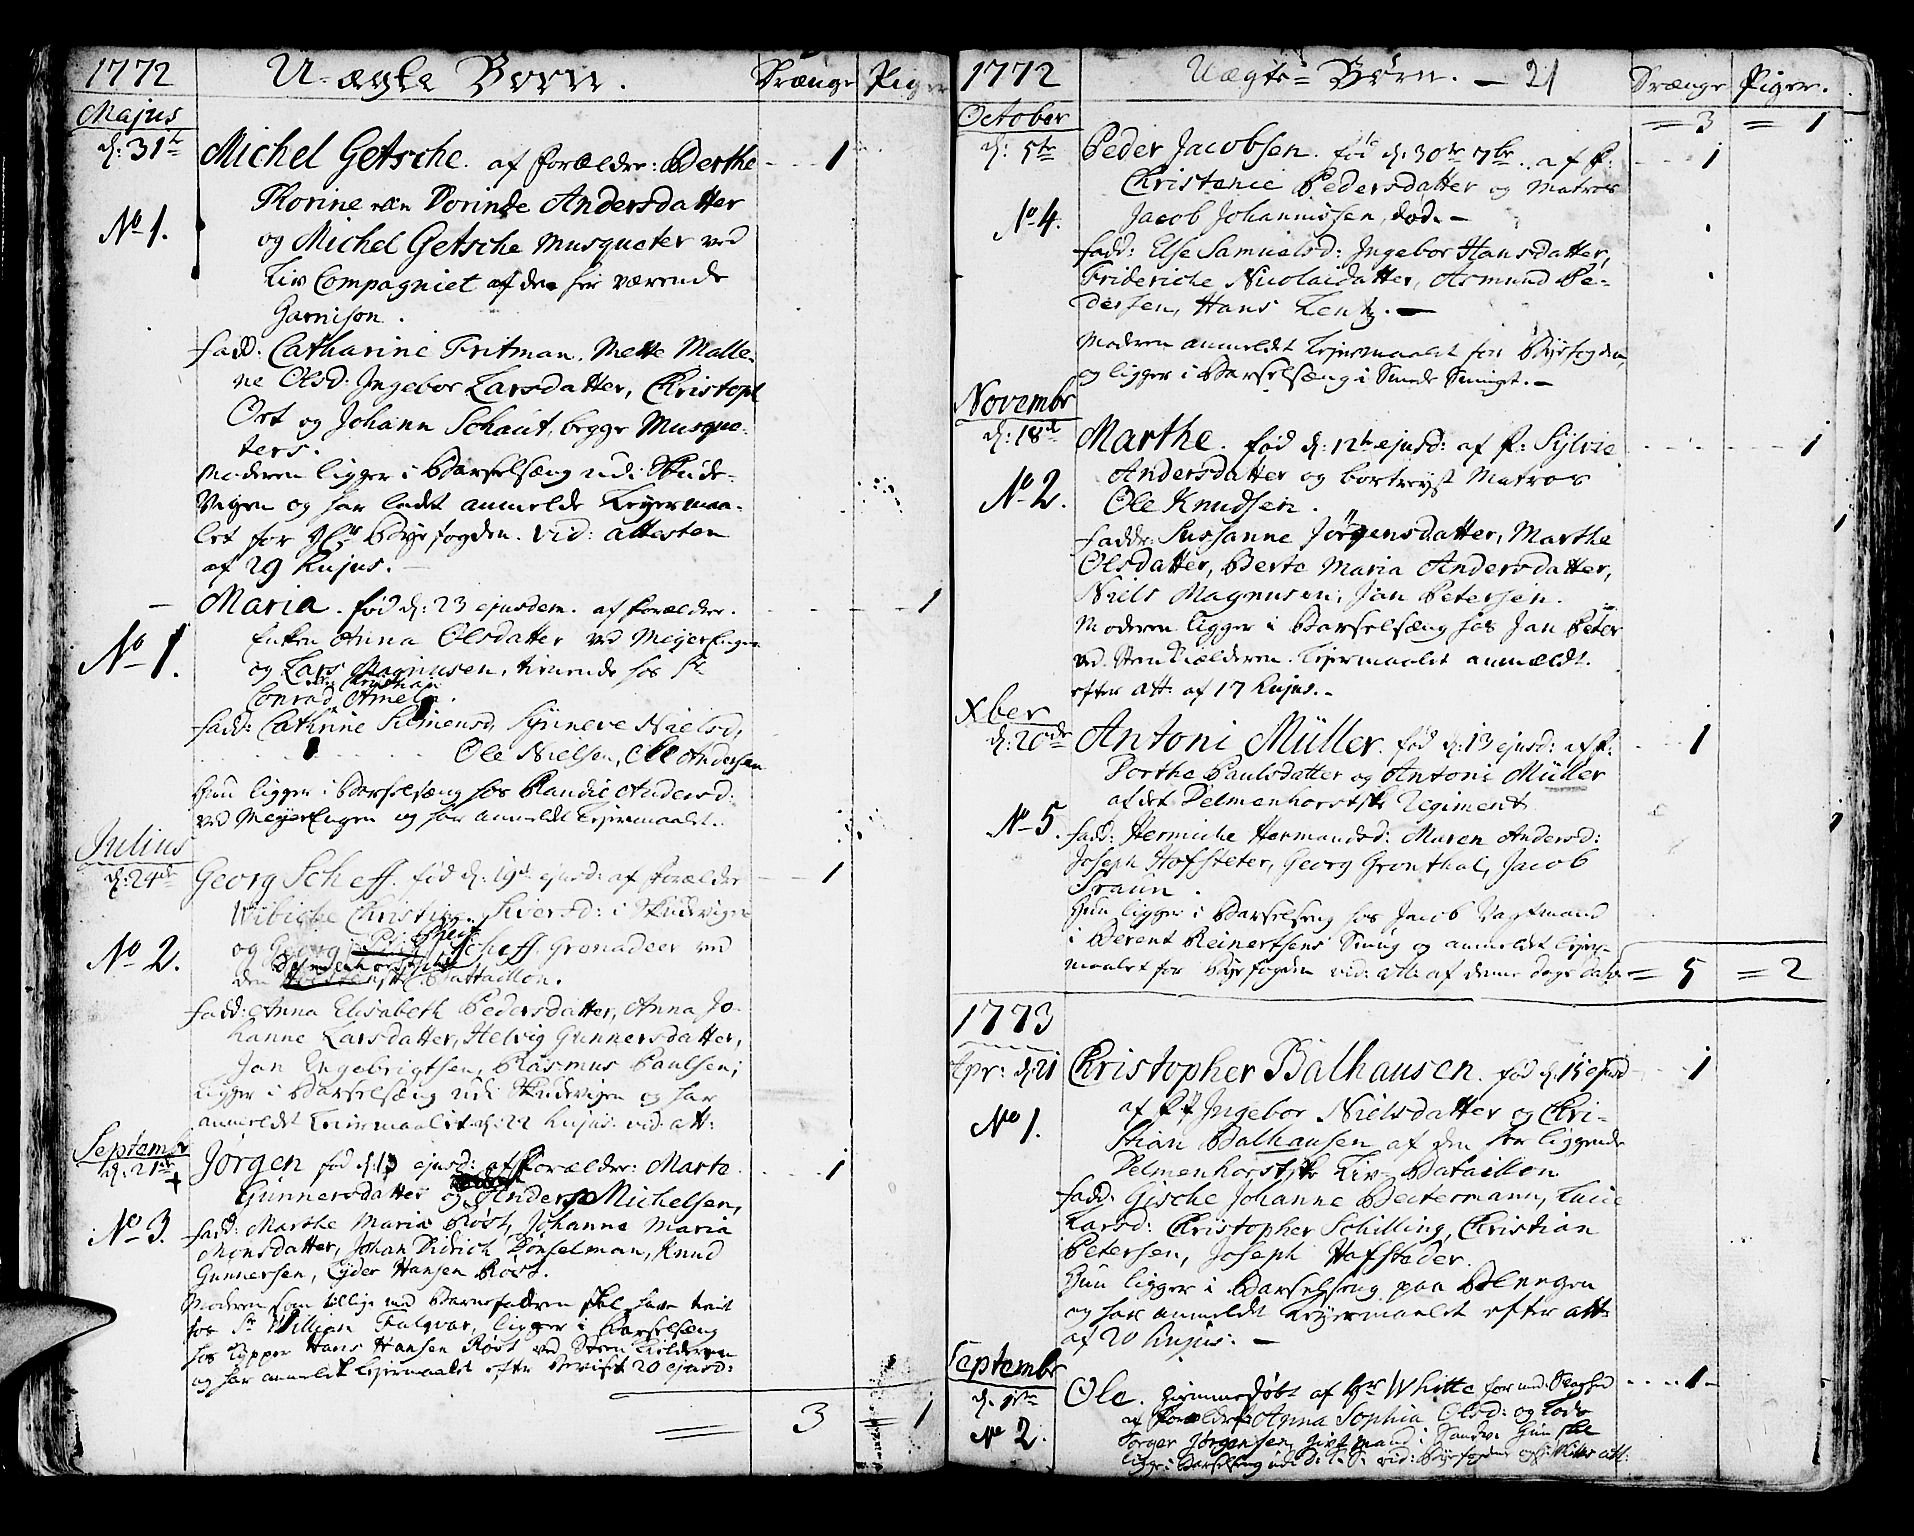 1772 U-ægte Børn. Drænge Piger
Majus
d: 31te Michel Getsche. af Forældre: Berthe - - 1
Thorine eller Dorinde Andersdatter
No 1. og Michel Getsche Musqueter ved
Liv Compagniet af den her værende
Garnison.
fadd: Catharine Fritman, Mette Malle-
ne Olsd: Ingebor Larsdatter, Christoph
Ort og Johann Schaut, begge Musque-
ters.
Moderen ligger i Barselsæng udi Skude-
Vigen og har ladet anmelde Leyermaa-
let for Hr Byefogden. vid: attesten
af 29 hujus.
- Maria. fød d: 23 ejusdem. af Forældre. - - 1
Enken Anna Olsdatter ved Meyer Eigen
No 1. og Lars Magnusen, tienende hos Sr
Conrad Christian Ameln.
fadd: Cathrine Simensd, Synneve Nielsd,
Ole Nielsen, Ole Andersen
Hun ligger i Barselsæng hos Randie Andersd:
ved Meyer Eigen og har anmeldt Leyermaalet.
Julius
d: 24de Georg Scheff. fød d: 19de ejusd: af Forældre - - 1
Wibiche Christine Siversd: i Skudevigen
No 2. og Georg Scheff Grenadeer ved
den Delmenhorstiske Battaillon.
fadd: Anna Elisabeth Pedersdatter, Anna Jo-
hanne Larsdatter, Helvig Gunnersdatter,
Jan Engebrigtsen, Rasmus Paulsen;
Ligger i Barselsæng udi Skudevigen og har
anmeldt Leiermaalet d: 22 hujus. vid: att:
Septembr
d: 21de Jørgen fød d: 13 ejusd: af Forældre: Marte - - 1
Gunnersdatter og Anders Michelsen,
No 3. fadd: Marthe Maria Røst, Johanne Maria
Monsdatter, Johan Didrich Dønselman, Knud
Gunnersen, Lyder Hansen Røst.
Moderen som tillige med Barnefaderen skal have tient
hos Sr William Falqvar, ligger i Barselsæng
hos Hans Hansen Røst ved Steen Kielderen
og har anmeldt Leyermaalet efter Beviis 20 ejusd:
= 3 = 1
1772 Uægte-Børn. - 21 Drænge Piger.
October = 3 = 1
d: 5te Peder Jacobsen. fød d: 30te 7br. af F: - - 1
Christence Pedersdatter og Matros
No 4. Jacob Johannissen, død. -
fadd: Else Samuelsd: Ingebor Hansdatter,
Frideriche Nicolaisdatter, Asmund Pe-
dersen, Hans Lentz. -
Moderen anmeldt Lejermaalet for Byefogden,
og ligger i Barselsæng i Smuget. -
Novembr
d: 18de Marthe. fød d: 12te ejusd: af F: Sylvie - - 1
Andersdatter og bortreyst Matros
No 2. Ole Knudsen.
fadd: Sussanne Jørgensdatter, Marthe
Olsdatter, Berte Maria Andersdatter,
Niels Magnusen, Jan Petersen.
Moderen ligger i Barselsæng hos Jan Peter
ved Steen Kielderen. Lejermaalet anmeldt.
efter att. af 17 hujus. -
Xber
d: 20de Antoni Müller. fød d: 13 ejusd: af F: - - 1
Dorthe Paulsdatter og Antoni Müller
af det Delmenhorstske Regiment
No 5. fadd: Herniche Hermandsd: Maren Andersd:
Joseph Hofsteter, Georg Gronthal, Jacob
Traun.
Hun ligger i Barselseng hos Jacob Vagtmand
i Berent Reinertsens Smug og anmeldt Lejer-
maalet for Byefogden vid: att: af denne dags dato = 5 = 2
1773
Apr: d: 21 Christopher Balhausen. fød d: 15 ejusd - - 1
af FF Ingebor Nielsdatter og Chri-
No 1. stian Balhausen af den her liggende
Delmenhorstske Liv Bataillon
fadd: Gesche Johanne Bestermann, Lucie
Larsd: Christopher Schilling, Christian
Petersen, Joseph Hofsteder.
Hun ligger i Barselseng paa Bleegen
og har anmeldt Leyermaalet efter att:
af 20 hujus: -
Septembr
d. 1ste Ole. hiemmedøbt af Hr Whitte - - 1 -
af Forældre Anna Sophia Olsd: og
No 2. Jørgensen, givt mand i Hun
ligger i Barselseng udi vid: Byefogdens att: